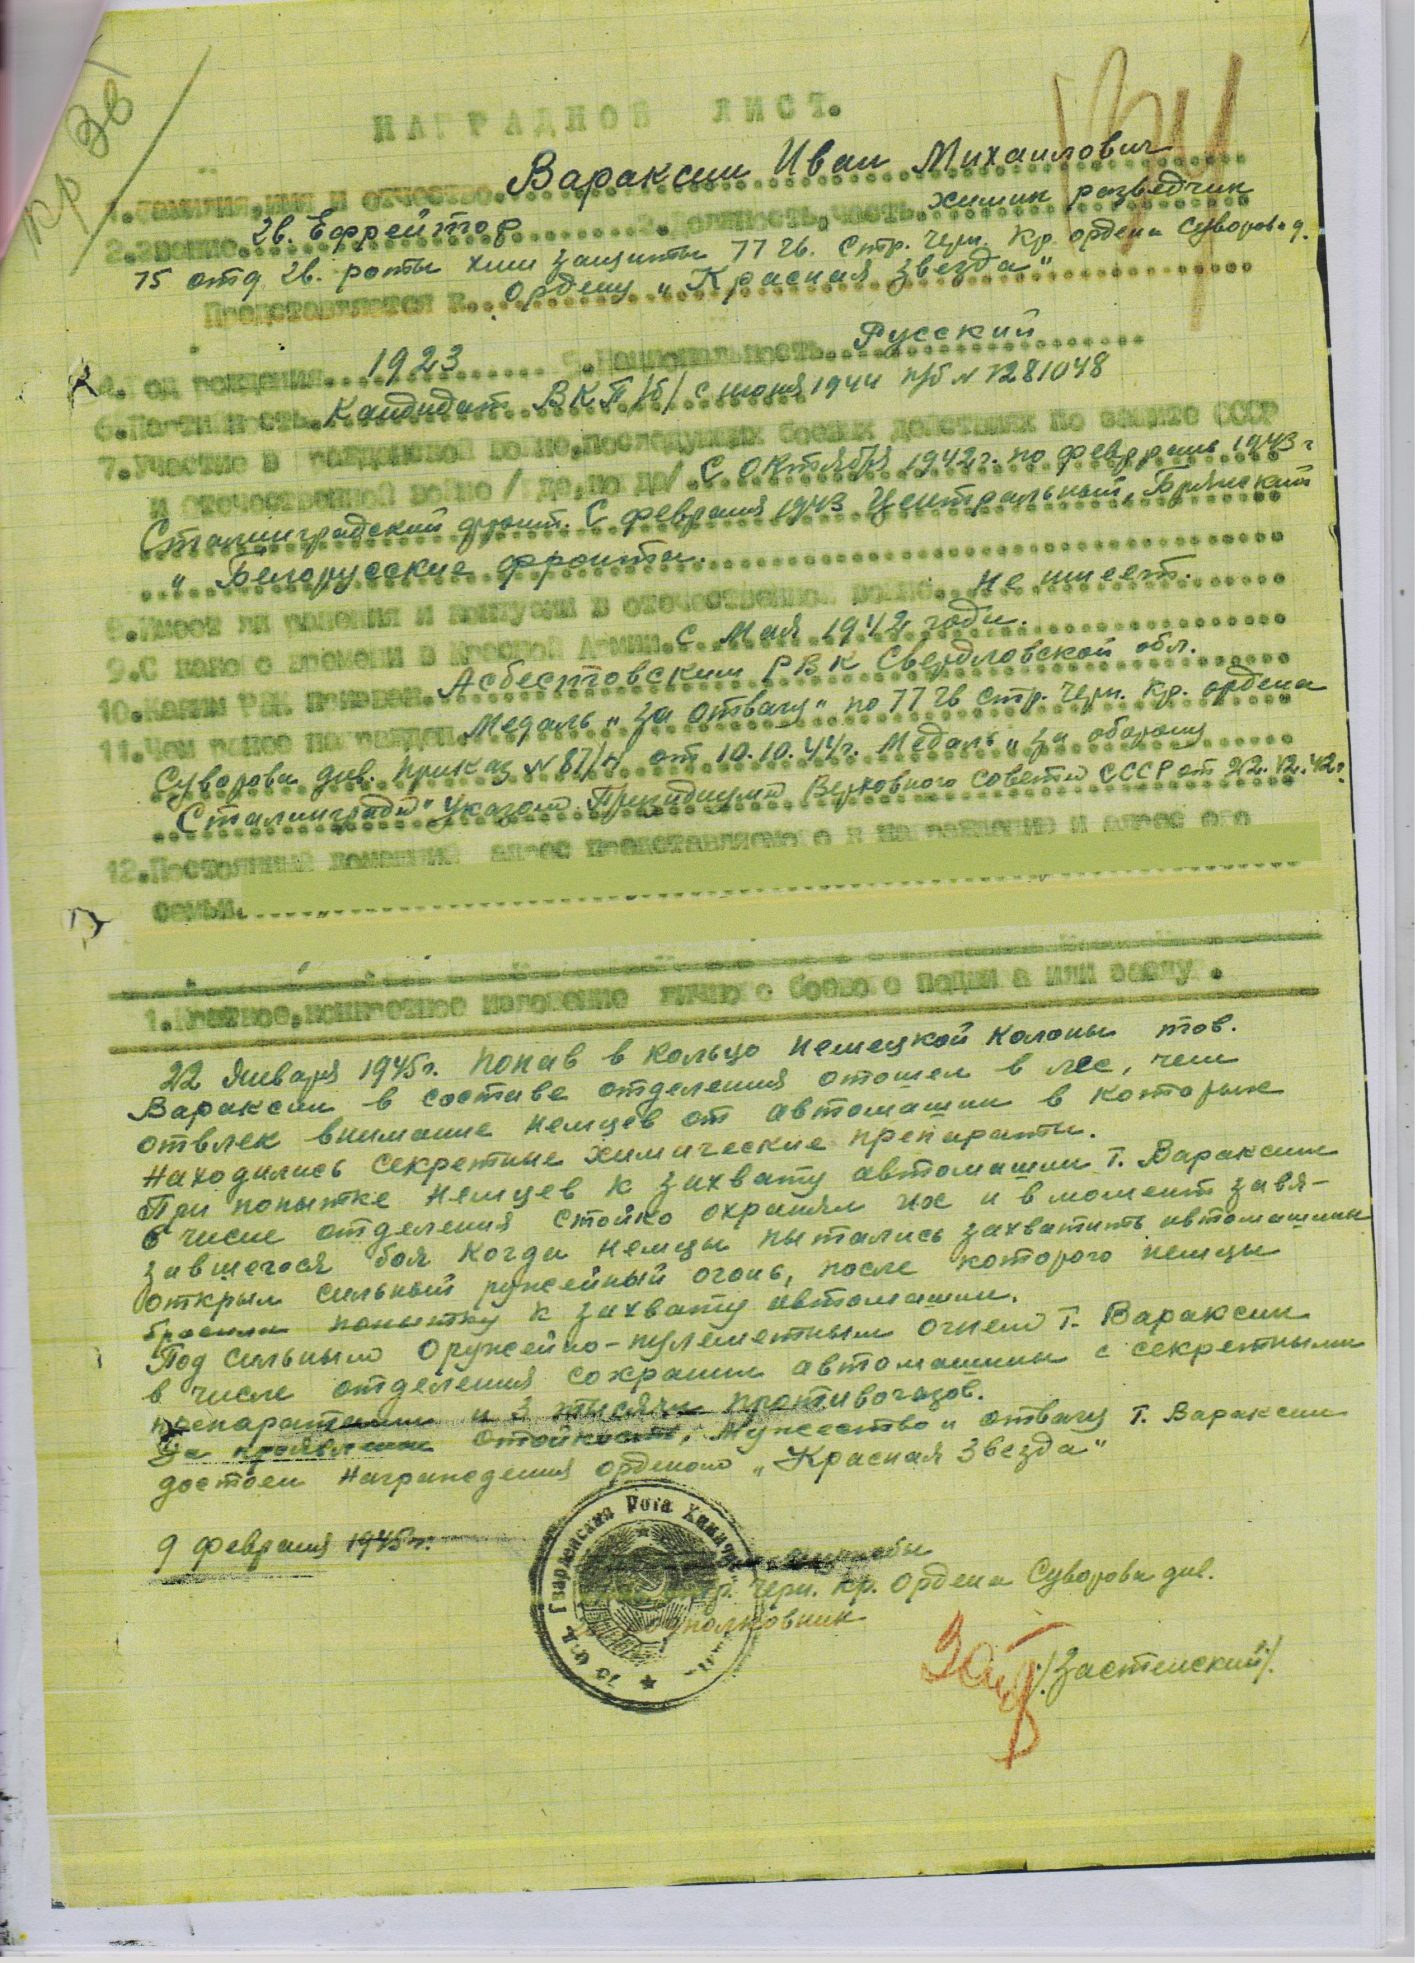 Кр Зв
НАГРАДНОЙ ЛИСТ.
1.Фамилия,имя и отчество. Вараксин Иван Михаилович
2.Звание. Гв. Ефрейтор 3.Должность,часть. химик разведчик
75 отд. гв. роты хим защиты 77 гв. стр. Черн. Кр. ордена Суворова д.
Представляется к. Ордену „Красная звезда"
4.Год рождения. 1923 5.Национальность. Русский
6.Партийность. Кандидат ВКП/б/ с июня 1944 п/б N 7281048
7.Участие в гражданской войне,последующих боевых действиях по защите СССР
и отечественной войне /где,когда/. С Октября 1942г. по февраль 1943 г
Сталинградский фронт. С февраля 1943 Центральный, Брянский
и Белорусские фронты.
8.Имеет ли ранения и контузии в отечественной войне. не имеет.
9.С какого времени в Красной Армии. с Мая 1942 года.
10.Каким РВК призван. Асбестовским РВК Свердловской обл.
11.Чем ранее награжден. Медаль „За отвагу" по 77 гв стр. Черн. Кр. ордена
Суворова див. приказ N 87/н от 10.10.44г. Медаль „за оборону
Сталинграда" Указом Президиума Верховного Совета СССР от 22.12.42г.
12.Постоянный домашний адрес представляемого к награждению и адрес его
семьи.
1.Краткое,конкретное изложение личного боевого подвига или заслуг.
22 Января 1945г. попав в кольцо немецкой колоны тов.
Вараксин в составе отделения отошел в лес, чем
отвлек внимание немцев от автомашин в которых
находились секретные химические препараты.
При попытке немцев к захвату автомашин т. Вараксин
в числе отделения стойко охранял их и в момент завя-
завшегося боя когда немцы пытались захватить автомашины
открыл сильный ружейный огонь, после которого немцы
бросили попытку к захвату автомашин.
Под сильным Оружейно-пулеметным огнем т. Вараксин
в числе отделения сохранил автомашины с секретными
препаратами и 3 тысячи противогазов.
За проявленные стойкость, мужество и отвагу т. Вараксин
достоен награждения орденом „Красная Звезда"
9 февраля 1945г.
75 отд. Гвардейская Рота Химич.
службы
стр. Черн. Кр. Ордена Суворова див.
подполковник
/Застенский/